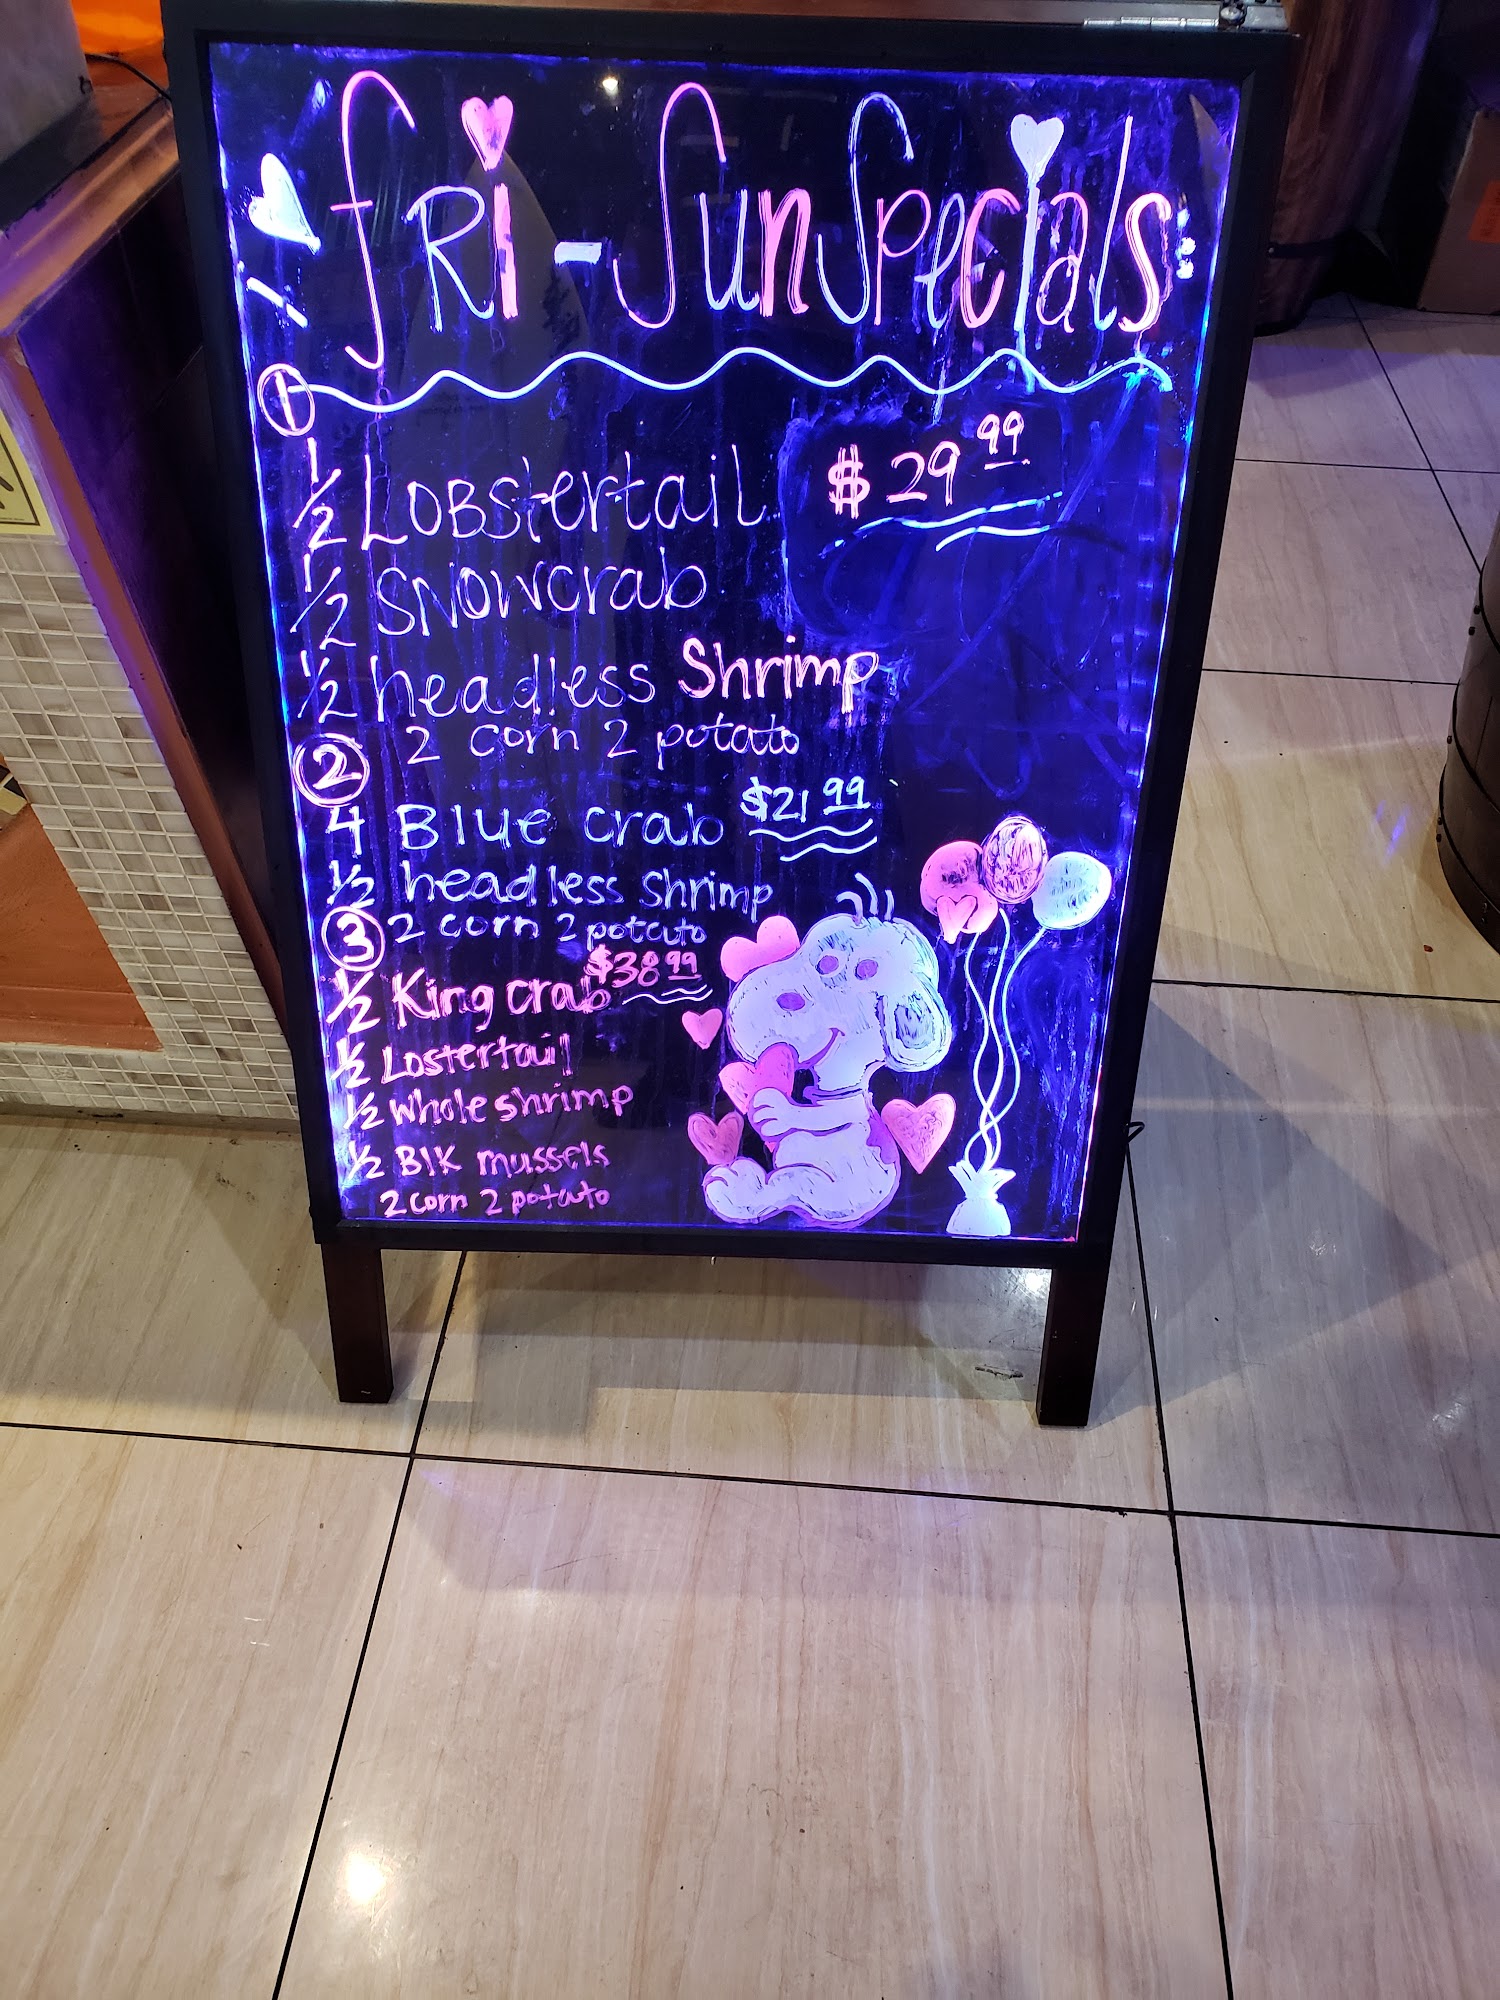 fRi - Sun Specials:
1
1/2 LOBstertaiL $29.99
1/2 SNOWcrab
1/2 headless Shrimp
2 corn 2 potato
2
4 Blue crab $21 99
1/2 headless shrimp
3 2 corn 2 potato
1/2 King crab $38 99
1/2 Lostertail
1/2 Whole shrimp
1/2 Blk mussels
2 corn 2 potato